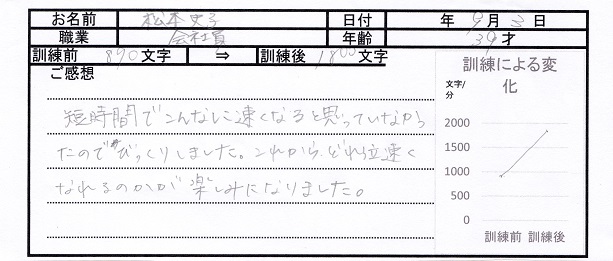 お名前 松本史子 日付 年 9月 3日
職業 会社員 年齢 39才
訓練前 890文字 ⇒ 訓練後 1800文字
ご感想
短時間でこんなに速くなると思っていなかっ
たので びっくりしました。これから、どれ位速く
なれるのかが楽しみになりました。
訓練による変
化
文字/
分
2000
1500
1000
500
0
訓練前 訓練後